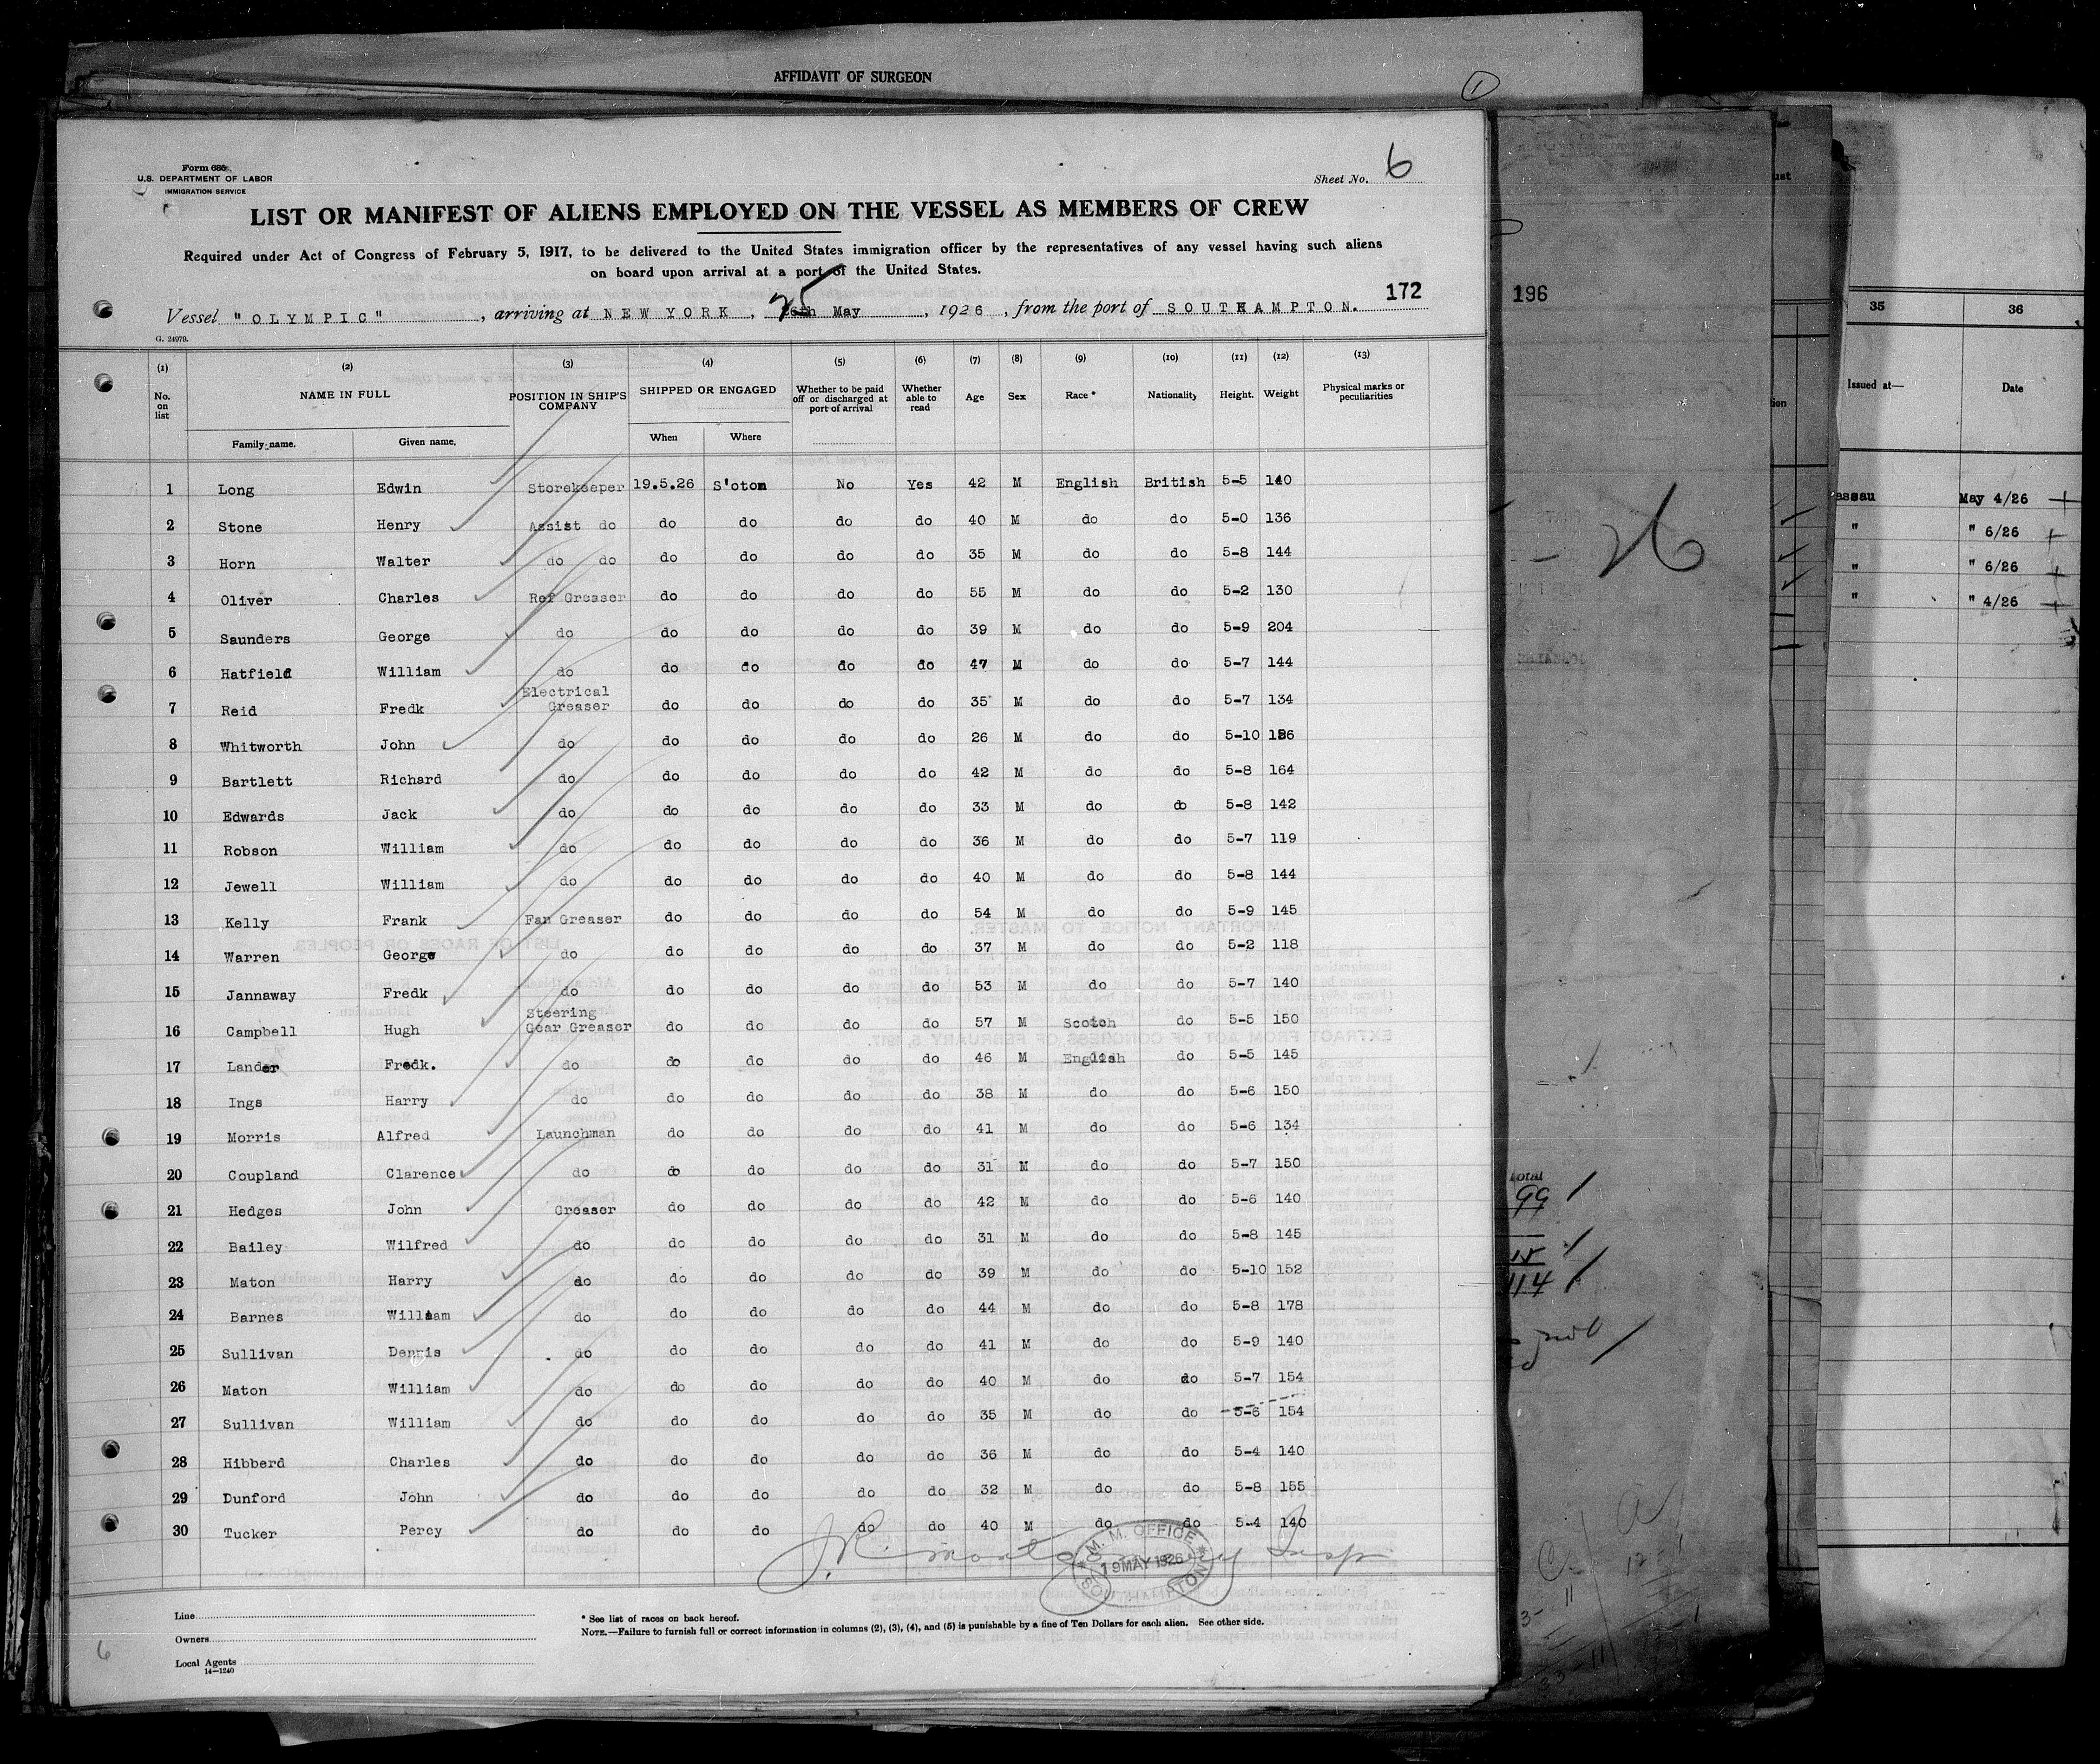 AFFIDAVIT OF SURGEON
1
Form 686
U.S. DEPARTMENT OF LABOR
IMMIGRATION SERVICE
Sheet No. 6
LIST OR MANIFEST OF ALIENS EMPLOYED ON THE VESSEL AS MEMBERS OF CREW
Required under Act of Congress of February 5, 1917, to be delivered to the United States immigration officer by the representatives of any vessel having such aliens
on board upon arrival at a port of the United States.
172
Vessel "OLYMPIC", arriving at NEW YORK, 25 May, 1926, from the port of SOUTHAMPTON.
G. 24079.
(1) (2) (3) (4) (5) (6) (7) (8) (9) (10) (11) (12) (13)
No. on list NAME IN FULL POSITION IN SHIP'S COMPANY SHIPPED OR ENGAGED Whether to be paid off or discharged at port of arrival Whether able to read Age Sex Race * Nationality Height. Weight Physical marks or peculiarities
Family name. Given name. When Where
1 Long Edwin Storekeeper 19.5.26 S'oton No Yes 42 M English British 5-5 140
2 Stone Henry Assist do do do do do 40 M do do 5-0 136
3 Horn Walter do do do do do do 35 M do do 5-8 144
4 Oliver Charles Ref Greaser do do do do 55 M do do 5-2 130
5 Saunders George do do do do do 39 M do do 5-9 204
6 Hatfield William do do do do do 47 M do do 5-7 144
7 Reid Fredk Electrical Greaser do do do do 35 M do do 5-7 134
8 Whitworth John do do do do do 26 M do do 5-10
9 Bartlett Richard do do do do do 42 M do do 5-8 164
10 Edwards Jack do do do do do 33 M do do 5-8 142
11 Robson William do do do do do 36 M do do 5-7 119
12 Jewell William do do do do do 40 M do do 5-8 144
13 Kelly Frank Fan Greaser do do do do 54 M do do 5-9 145
14 Warren George do do do do do 37 M do do 5-2 118
15 Jannaway Fredk do do do do do 53 M do do 5-7 140
16 Campbell Hugh Steering Gear Greaser do do do do 57 M Scotch do 5-5 150
17 Lander Fredk. do do do do do 46 M English do 5-5 145
18 Ings Harry do do do do do 38 M do do 5-6 150
19 Morris Alfred Launchman do do do do 41 M do do 5-6 134
20 Coupland Clarence do do do do do 31 M do do 5-7 150
21 Hedges John Greaser do do do do 42 M do do 5-6 140
22 Bailey Wilfred do do do do do 31 M do do 5-8 145
23 Maton Harry do do do do do 39 M do do 5-10 152
24 Barnes William do do do do do 44 M do do 5-8 178
25 Sullivan Dennis do do do do do 41 M do do 5-9 140
26 Maton William do do do do do 40 M do do 5-7 154
27 Sullivan William do do do do do 35 M do do 5-6 154
28 Hibberd Charles do do do do do 36 M do do 5-4 140
29 Dunford John do do do do do 32 M do do 5-8 155
30 Tucker Percy do do do do do 40 M do do 5-4 140
J.R. Montgomery Insp
M.M. OFFICE
19 MAY 1926
SOUTHAMPTON
Line
Owners
Local Agents
14-1240
* See list of races on back hereof.
NOTE.—Failure to furnish full or correct information in columns (2), (3), (4), and (5) is punishable by a fine of Ten Dollars for each alien. See other side.
6
196
26
total
99
15
114
35 36
Issued at— Date
May 4/26
" " 6/26
" " 6/26
" " 4/26